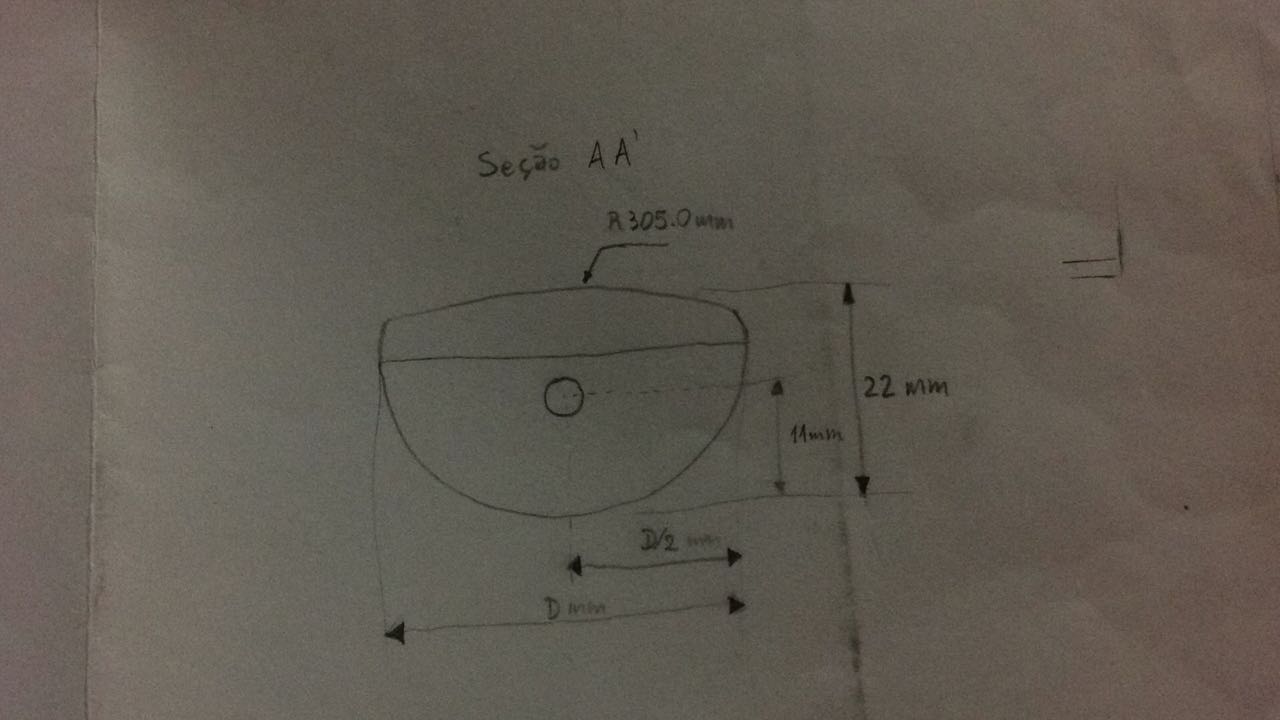 Seção AA'
R305.0mm
22 mm
11mm
D/2 mm
D mm